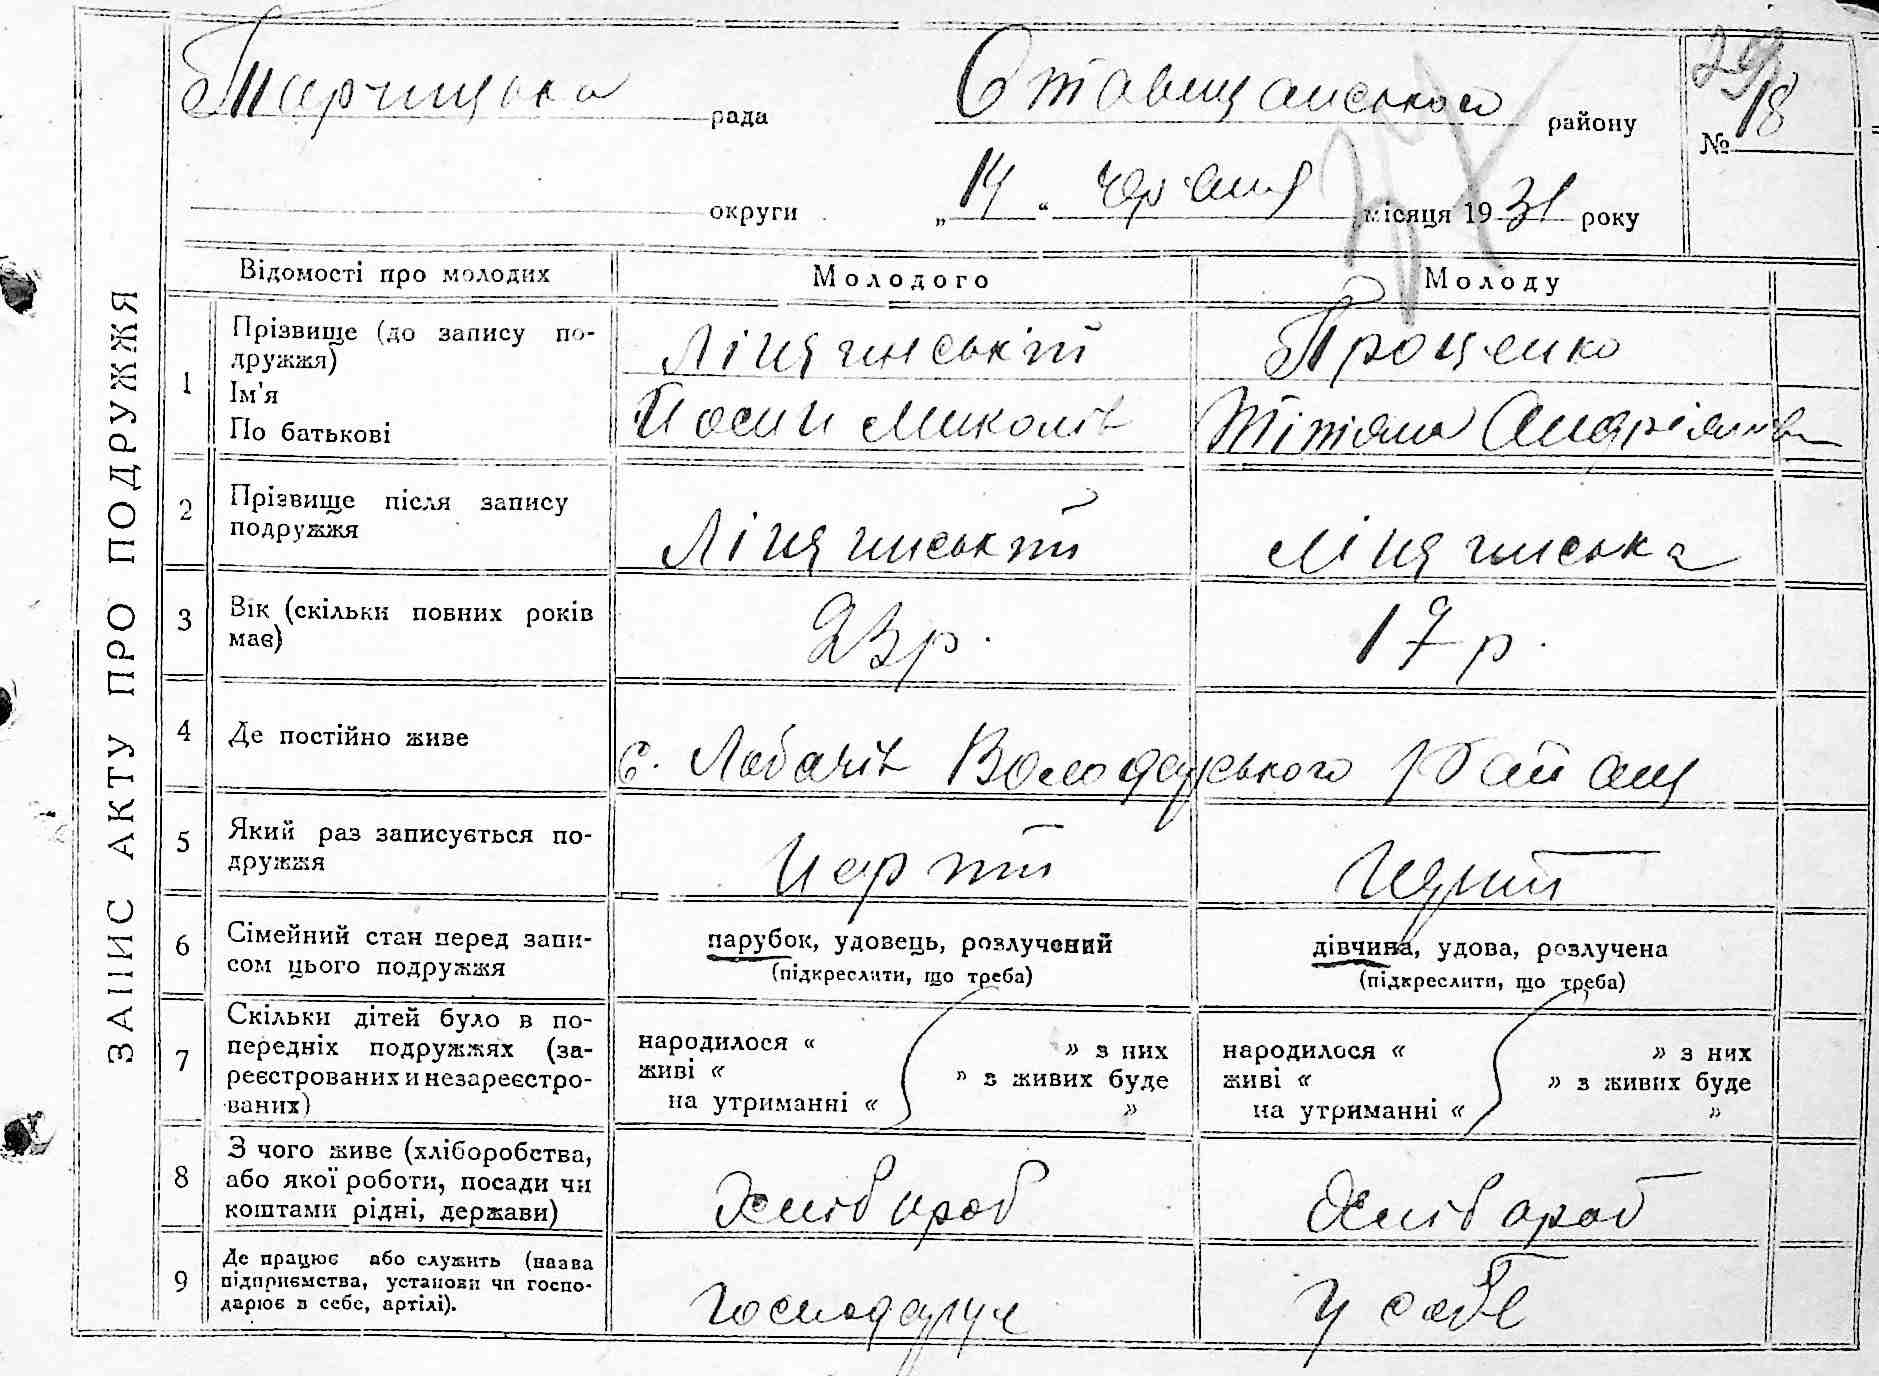 Торчицька рада Ставищанського району
№ 18
29
37
округи „14“ червня місяця 1931 року
ЗАПИС АКТУ ПРО ПОДРУЖЖЯ
Відомості про молодих Молодого Молоду
1 Прізвище (до запису по-
дружжя)
Ім'я
По батькові
Ліпинський Проценко
Йосип Миколів Тітяна Андріянівна
2 Прізвище після запису
подружжя
Ліпинський Ліпинська
3 Вік (скільки повних років
має)
23 р. 17 р.
4 Де постійно живе
с. Лобачів Володарського району
5 Який раз записується по-
дружжя
перший
6 Сімейний стан перед запи-
сом цього подружжя
парубок, удовець, розлучений
(підкреслити, що треба)
дівчина, удова, розлучена
(підкреслити, що треба)
7 Скільки дітей було в по-
передніх подружжях (за-
реєстрованих и незареєстро-
ваних)
народилося « » з них
живі « » з живих буде
на утриманні « »
народилося « » з них
живі « » з живих буде
на утриманні « »
8 З чого живе (хліборобства,
або якої роботи, посади чи
коштами рідні, держави)
Хлібороб Хлібороб
9 Де працює або служить (назва
підприємства, установи чи госпо-
дарює в себе, артілі).
господарує у себе